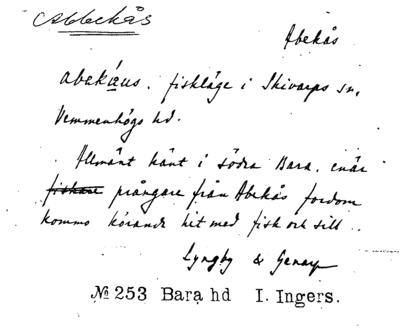 Abbekås
Abekås
abekåus. fiskläge i Skivarps sn,
Vemmenhögs hd.
Allmänt känt i södra Bara, enär
fiskare prångare från Abekås fordom
kommo körande hit med fisk och sill.
Lyngby & Genarp
№ 253 Bara hd I. Ingers.